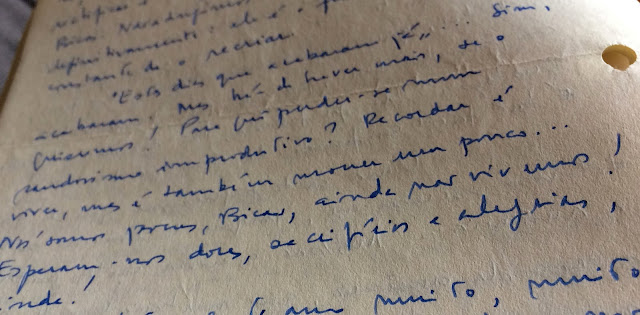 Bicas. Nada
definitivamente: ele é o
constante de o recriar.
"Estes dias que acabaram já"... Sim,
acabaram. Mas há de haver mais, se o
quisermos! Para quê perder-se num
saudosismo improdutivo? Recordar é
viver, mas é também morrer um pouco...
Nós somos jovens, Bicas, ainda não vivemos!
Esperam-nos dores, sacrifícios e alegrias,
ainda!
muito, muito